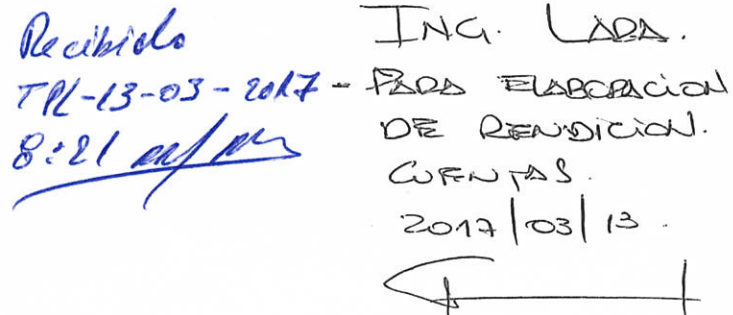 Recibido
13-03-2017 -
8:21
ING. LARA.
PARA ELABORACION
DE RENDICION.
CUENTAS.
2017/03/13.